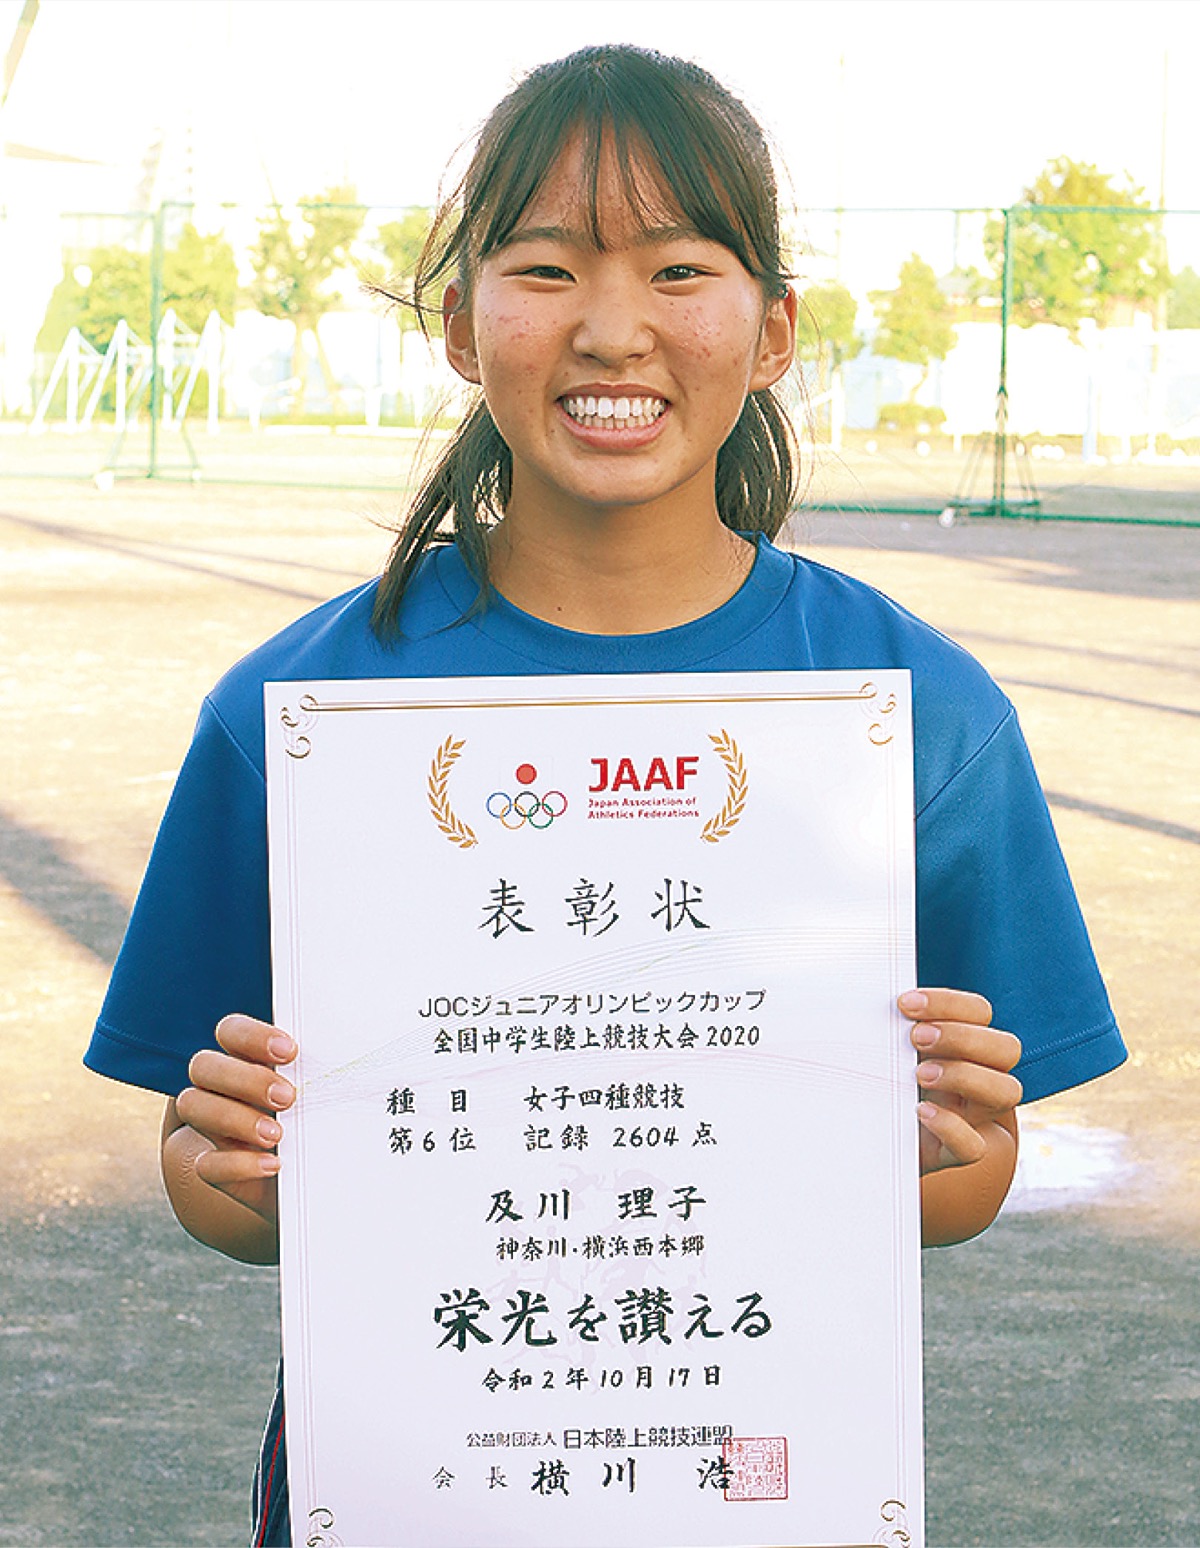 JAAF
Japan Association of
Athletics Federations
表彰状
JOCジュニアオリンピックカップ
全国中学生陸上競技大会2020
種目 女子四種競技
第6位 記録 2604点
及川 理子
神奈川・横浜西本郷
栄光を讃える
令和2年10月17日
公益財団法人 日本陸上競技連盟
会長 横川 浩